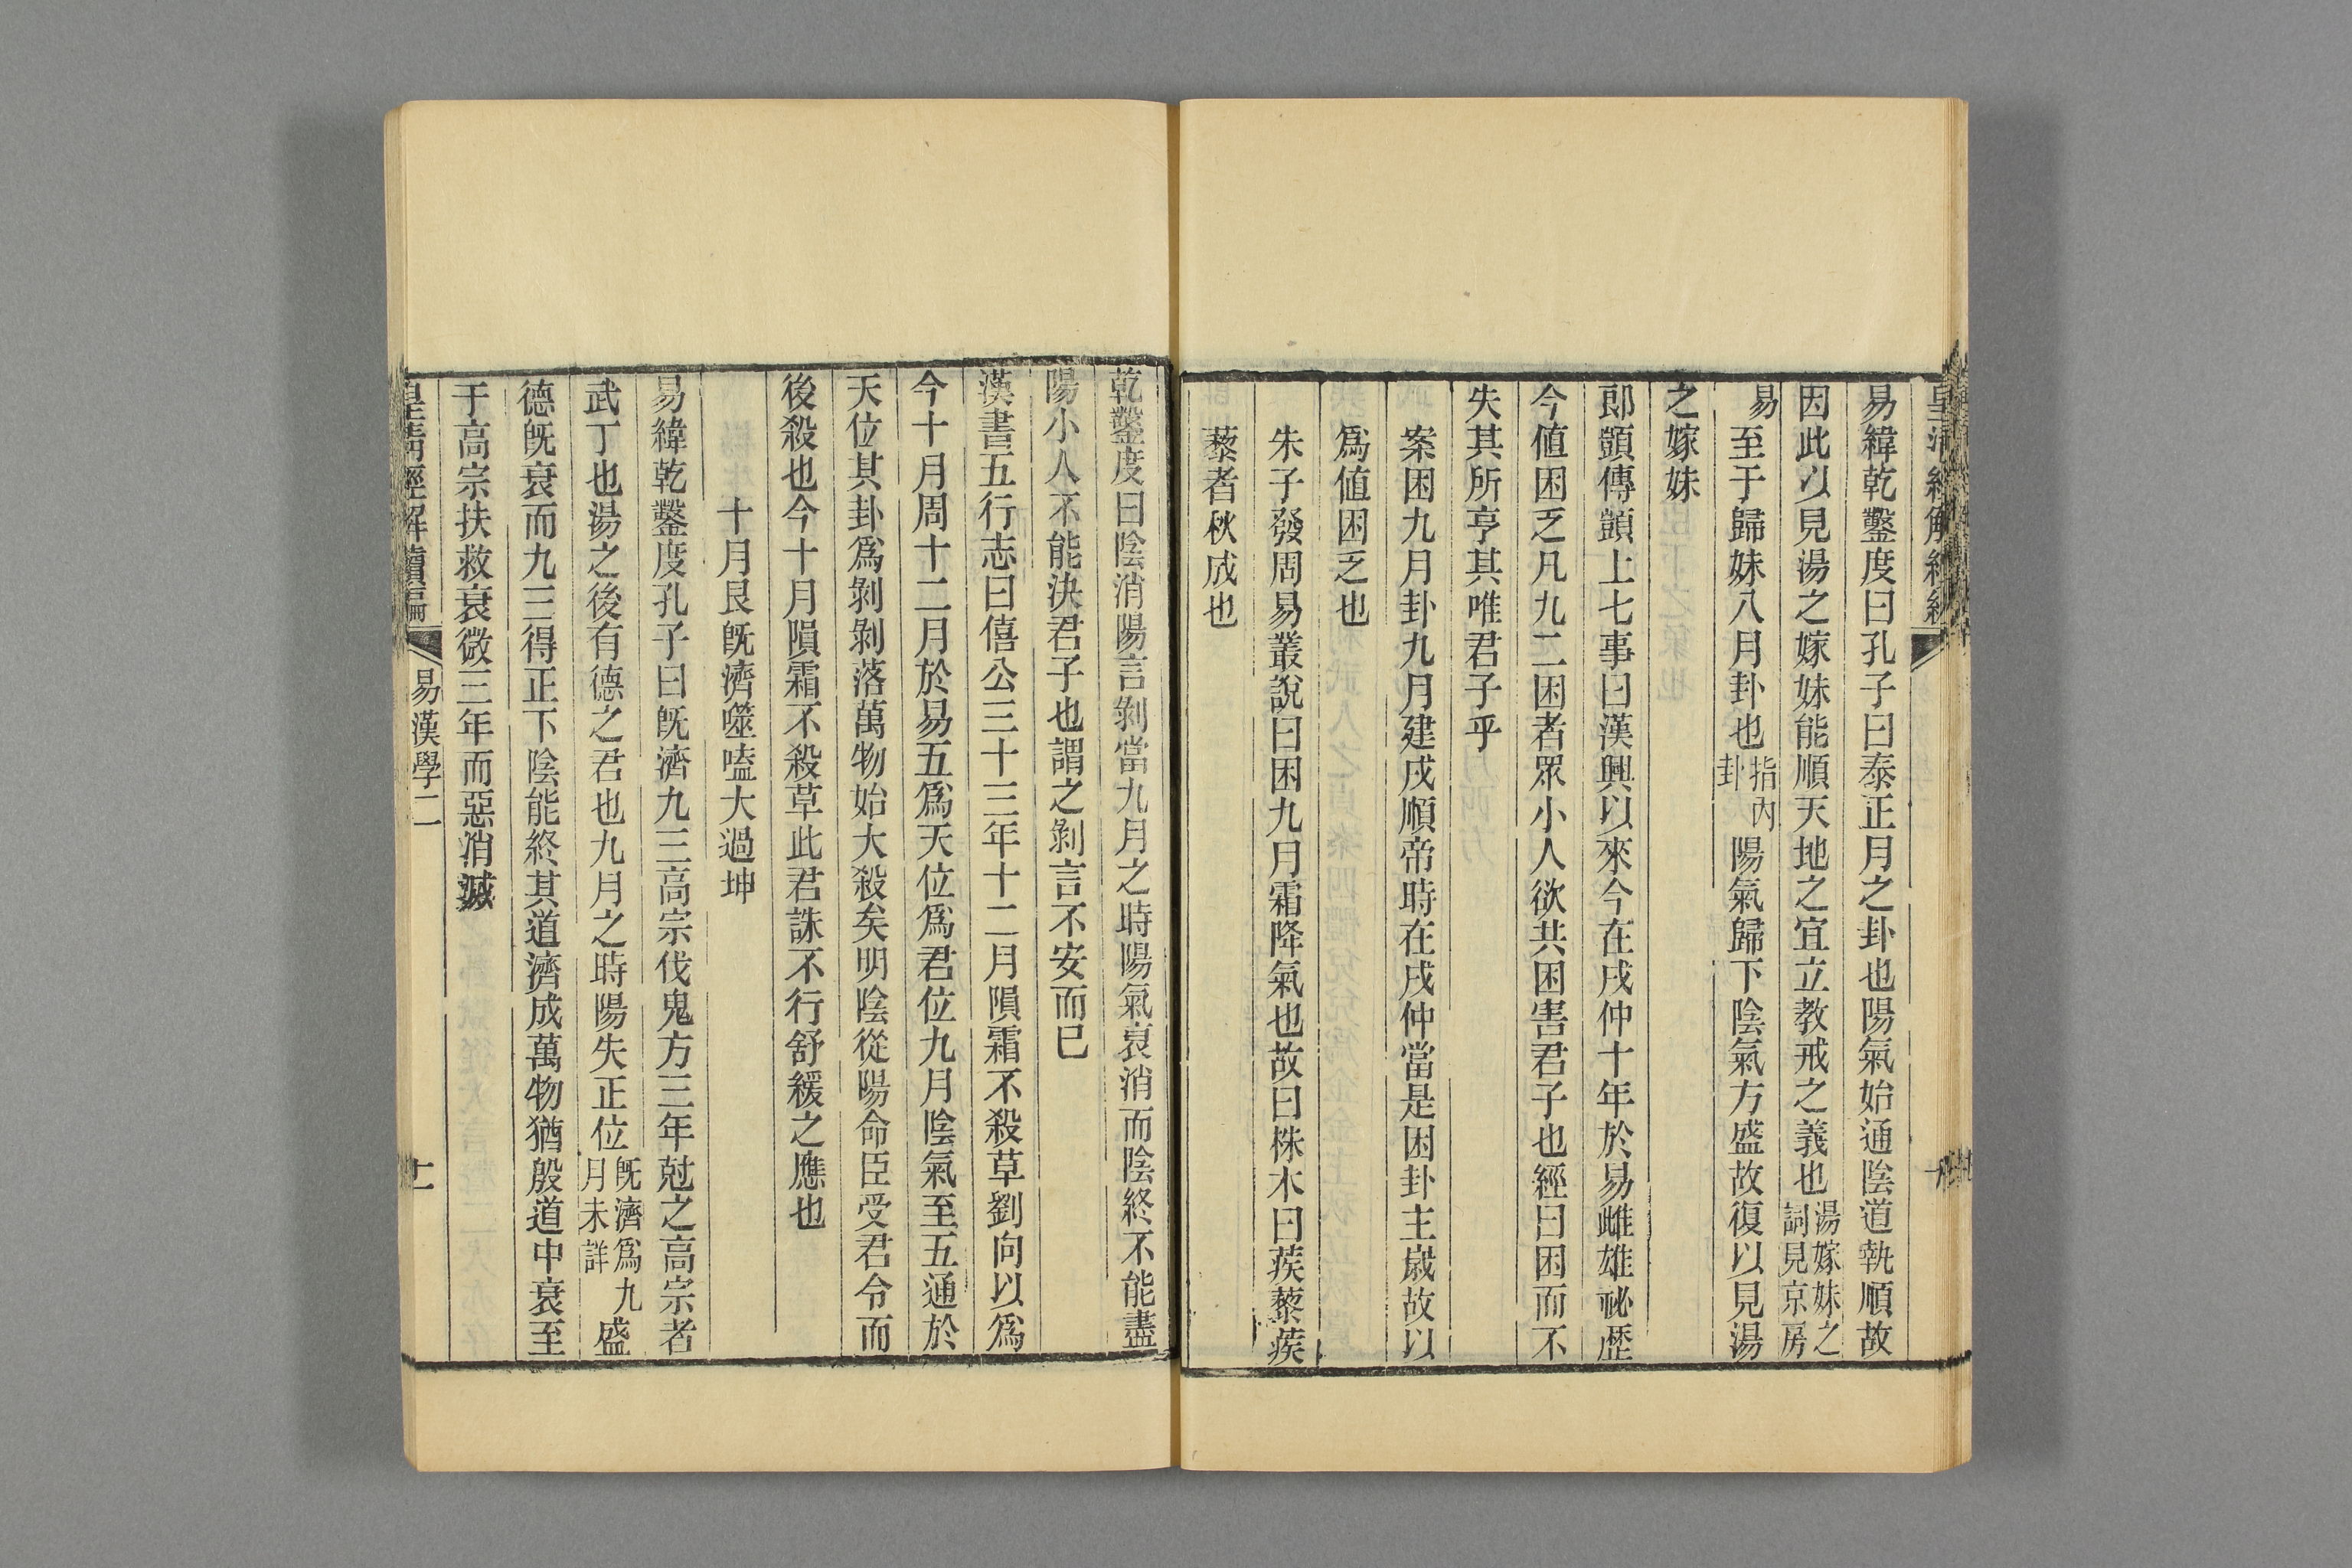 易緯乾鑿度曰孔子曰泰正月之卦也陽氣始通陰道執順故
因此以見湯之嫁妹能順天地之宜立教戒之義也湯嫁妹之詞見京房
易至于歸妹八月卦也指內卦陽氣歸下陰氣方盛故復以見湯
之嫁妹
郎顗傳顗上七事曰漢興以來今在戌仲十年於易雌雄祕歷
今値困乏凡九二困者眾小人欲共困害君子也經曰困而不
失其所亨其唯君子乎
案困九月卦九月建戌順帝時在戌仲當是困卦主嵗故以
爲値困乏也
朱子發周易叢說曰困九月霜降氣也故曰株木曰蒺藜蒺
藜者秋成也
乾鑿度曰陰消陽言剝當九月之時陽氣衰消而陰終不能盡
陽小人不能決君子也謂之剝言不安而已
漢書五行志曰僖公三十三年十二月隕霜不殺草劉向以爲
今十月周十二月於易五爲天位爲君位九月陰氣至五通於
天位其卦爲剝剝落萬物始大殺矣明陰從陽命臣受君令而
後殺也今十月隕霜不殺草此君誅不行舒緩之應也
十月艮旣濟噬嗑大過坤
易緯乾鑿度孔子曰旣濟九三高宗伐鬼方三年尅之高宗者
武丁也湯之後有德之君也九月之時陽失正位旣濟爲九月未詳盛
德旣衰而九三得正下陰能終其道濟成萬物猶殷道中衰至
于高宗扶救衰微三年而惡消滅
皇淸經解續編 易漢學二 十一